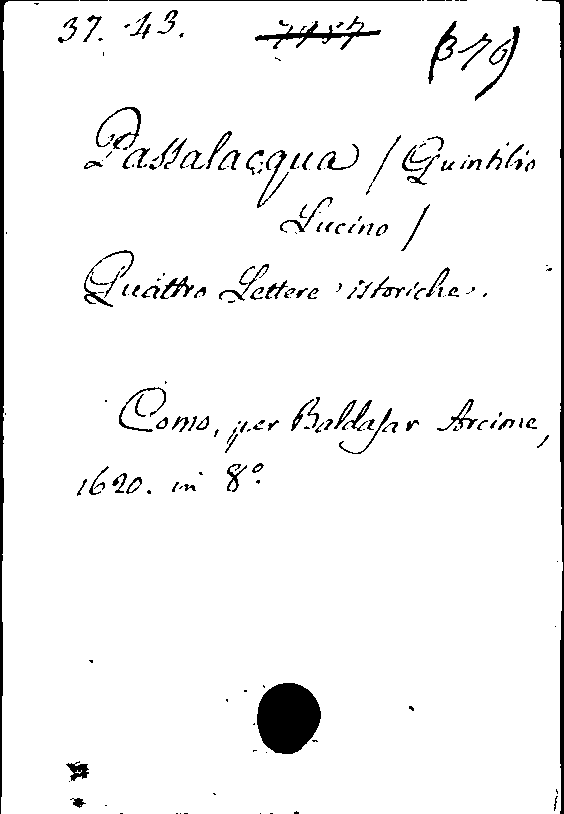 37. 43. 7757 (376)
Passalacqua / Quintilio
Lucino /
Quattro Lettere istoriche.
Como, per Baldasar Arcione,
1620. in 8°.